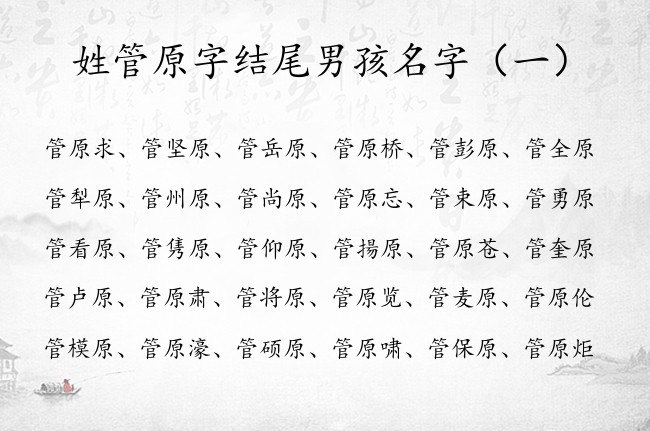 姓管原字结尾男孩名字（一）
管原求、管坚原、管岳原、管原桥、管彭原、管全原
管犁原、管州原、管尚原、管原忘、管束原、管勇原
管看原、管隽原、管仰原、管揚原、管原苍、管奎原
管卢原、管原肃、管将原、管原览、管麦原、管原伦
管模原、管原濠、管硕原、管原啸、管保原、管原炬